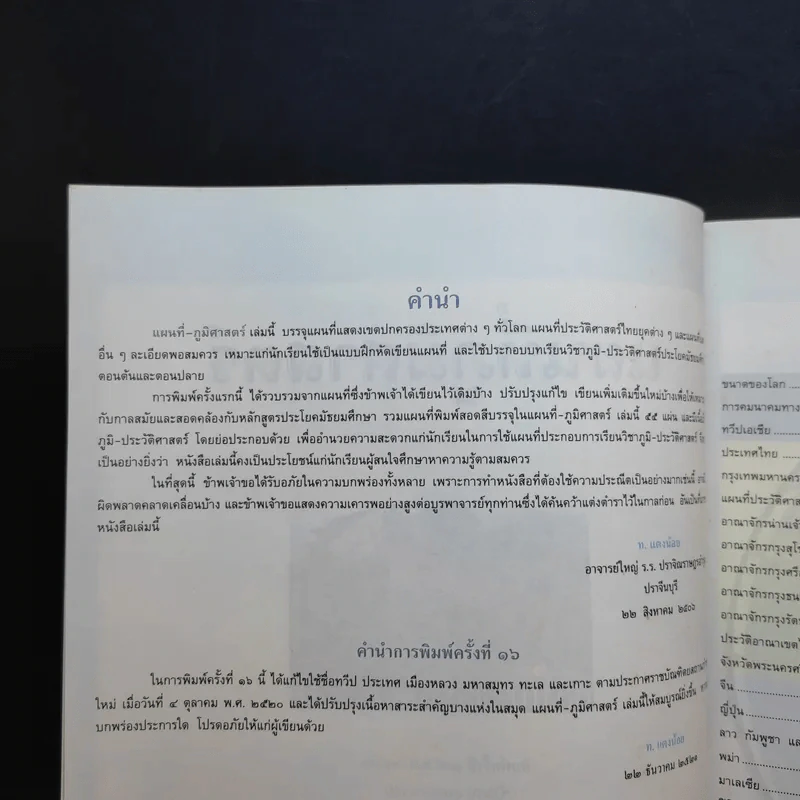 คำนำ
แผนที่-ภูมิศาสตร์ เล่มนี้ บรรจุแผนที่แสดงเขตปกครองประเทศต่าง ๆ ทั่วโลก แผนที่ประวัติศาสตร์ไทยยุคต่าง ๆ และแผนที่
อื่น ๆ ละเอียดพอสมควร เหมาะแก่นักเรียนใช้เป็นแบบฝึกหัดเขียนแผนที่ และใช้ประกอบบทเรียนวิชาภูมิ-ประวัติศาสตร์ประโยคมัธยมศึกษา
ตอนต้นและตอนปลาย
การพิมพ์ครั้งแรกนี้ ได้รวบรวมจากแผนที่ซึ่งข้าพเจ้าได้เขียนไว้เดิมบ้าง ปรับปรุงแก้ไข เขียนเพิ่มเติมขึ้นใหม่บ้างเพื่อให้เหมาะ
กับกาลสมัยและสอดคล้องกับหลักสูตรประโยคมัธยมศึกษา รวมแผนที่พิมพ์สอดสีบรรจุในแผนที่-ภูมิศาสตร์ เล่มนี้ ๕๕ แผ่น และมีเนื้อ
ภูมิ-ประวัติศาสตร์ โดยย่อประกอบด้วย เพื่ออำนวยความสะดวกแก่นักเรียนในการใช้แผนที่ประกอบการเรียนวิชาภูมิ-ประวัติศาสตร์
เป็นอย่างยิ่งว่า หนังสือเล่มนี้คงเป็นประโยชน์แก่นักเรียนผู้สนใจศึกษาหาความรู้ตามสมควร
ในที่สุดนี้ ข้าพเจ้าขอได้รับอภัยในความบกพร่องทั้งหลาย เพราะการทำหนังสือที่ต้องใช้ความประณีตเป็นอย่างมากเช่นนี้
ผิดพลาดคลาดเคลื่อนบ้าง และข้าพเจ้าขอแสดงความเคารพอย่างสูงต่อบูรพาจารย์ทุกท่านซึ่งได้ค้นคว้าแต่งตำราไว้ในกาลก่อน อันเป็นที่มา
หนังสือเล่มนี้
ท. แตงน้อย
อาจารย์ใหญ่ ร.ร. ปราจิณราษฎรอำรุง
ปราจีนบุรี
๒๒ สิงหาคม ๒๕๐๖
คำนำการพิมพ์ครั้งที่ ๑๖
ในการพิมพ์ครั้งที่ ๑๖ นี้ ได้แก้ไขใช้ชื่อทวีป ประเทศ เมืองหลวง มหาสมุทร ทะเล และเกาะ ตามประกาศราชบัณฑิตยสถาน
ใหม่ เมื่อวันที่ ๔ ตุลาคม พ.ศ. ๒๕๒๐ และได้ปรับปรุงเนื้อหาสาระสำคัญบางแห่งในสมุด แผนที่-ภูมิศาสตร์ เล่มนี้ให้สมบูรณ์ยิ่งขึ้น
บกพร่องประการใด โปรดอภัยให้แก่ผู้เขียนด้วย
ท. แตงน้อย
๒๒ ธันวาคม
ขนาดของโลก
การคมนาคมทาง
ทวีปเอเชีย
ประเทศไทย
กรุงเทพมหานคร
แผนที่ประวัติศาส
อาณาจักรน่านเจ้า
อาณาจักรกรุงสุโข
อาณาจักรกรุงศรี
อาณาจักรกรุงธน
อาณาจักรกรุงรัต
ประวัติอาณาเขต
จังหวัดพระนครศรี
จีน
ญี่ปุ่น
ลาว กัมพูชา และ
พม่า
มาเลเซีย